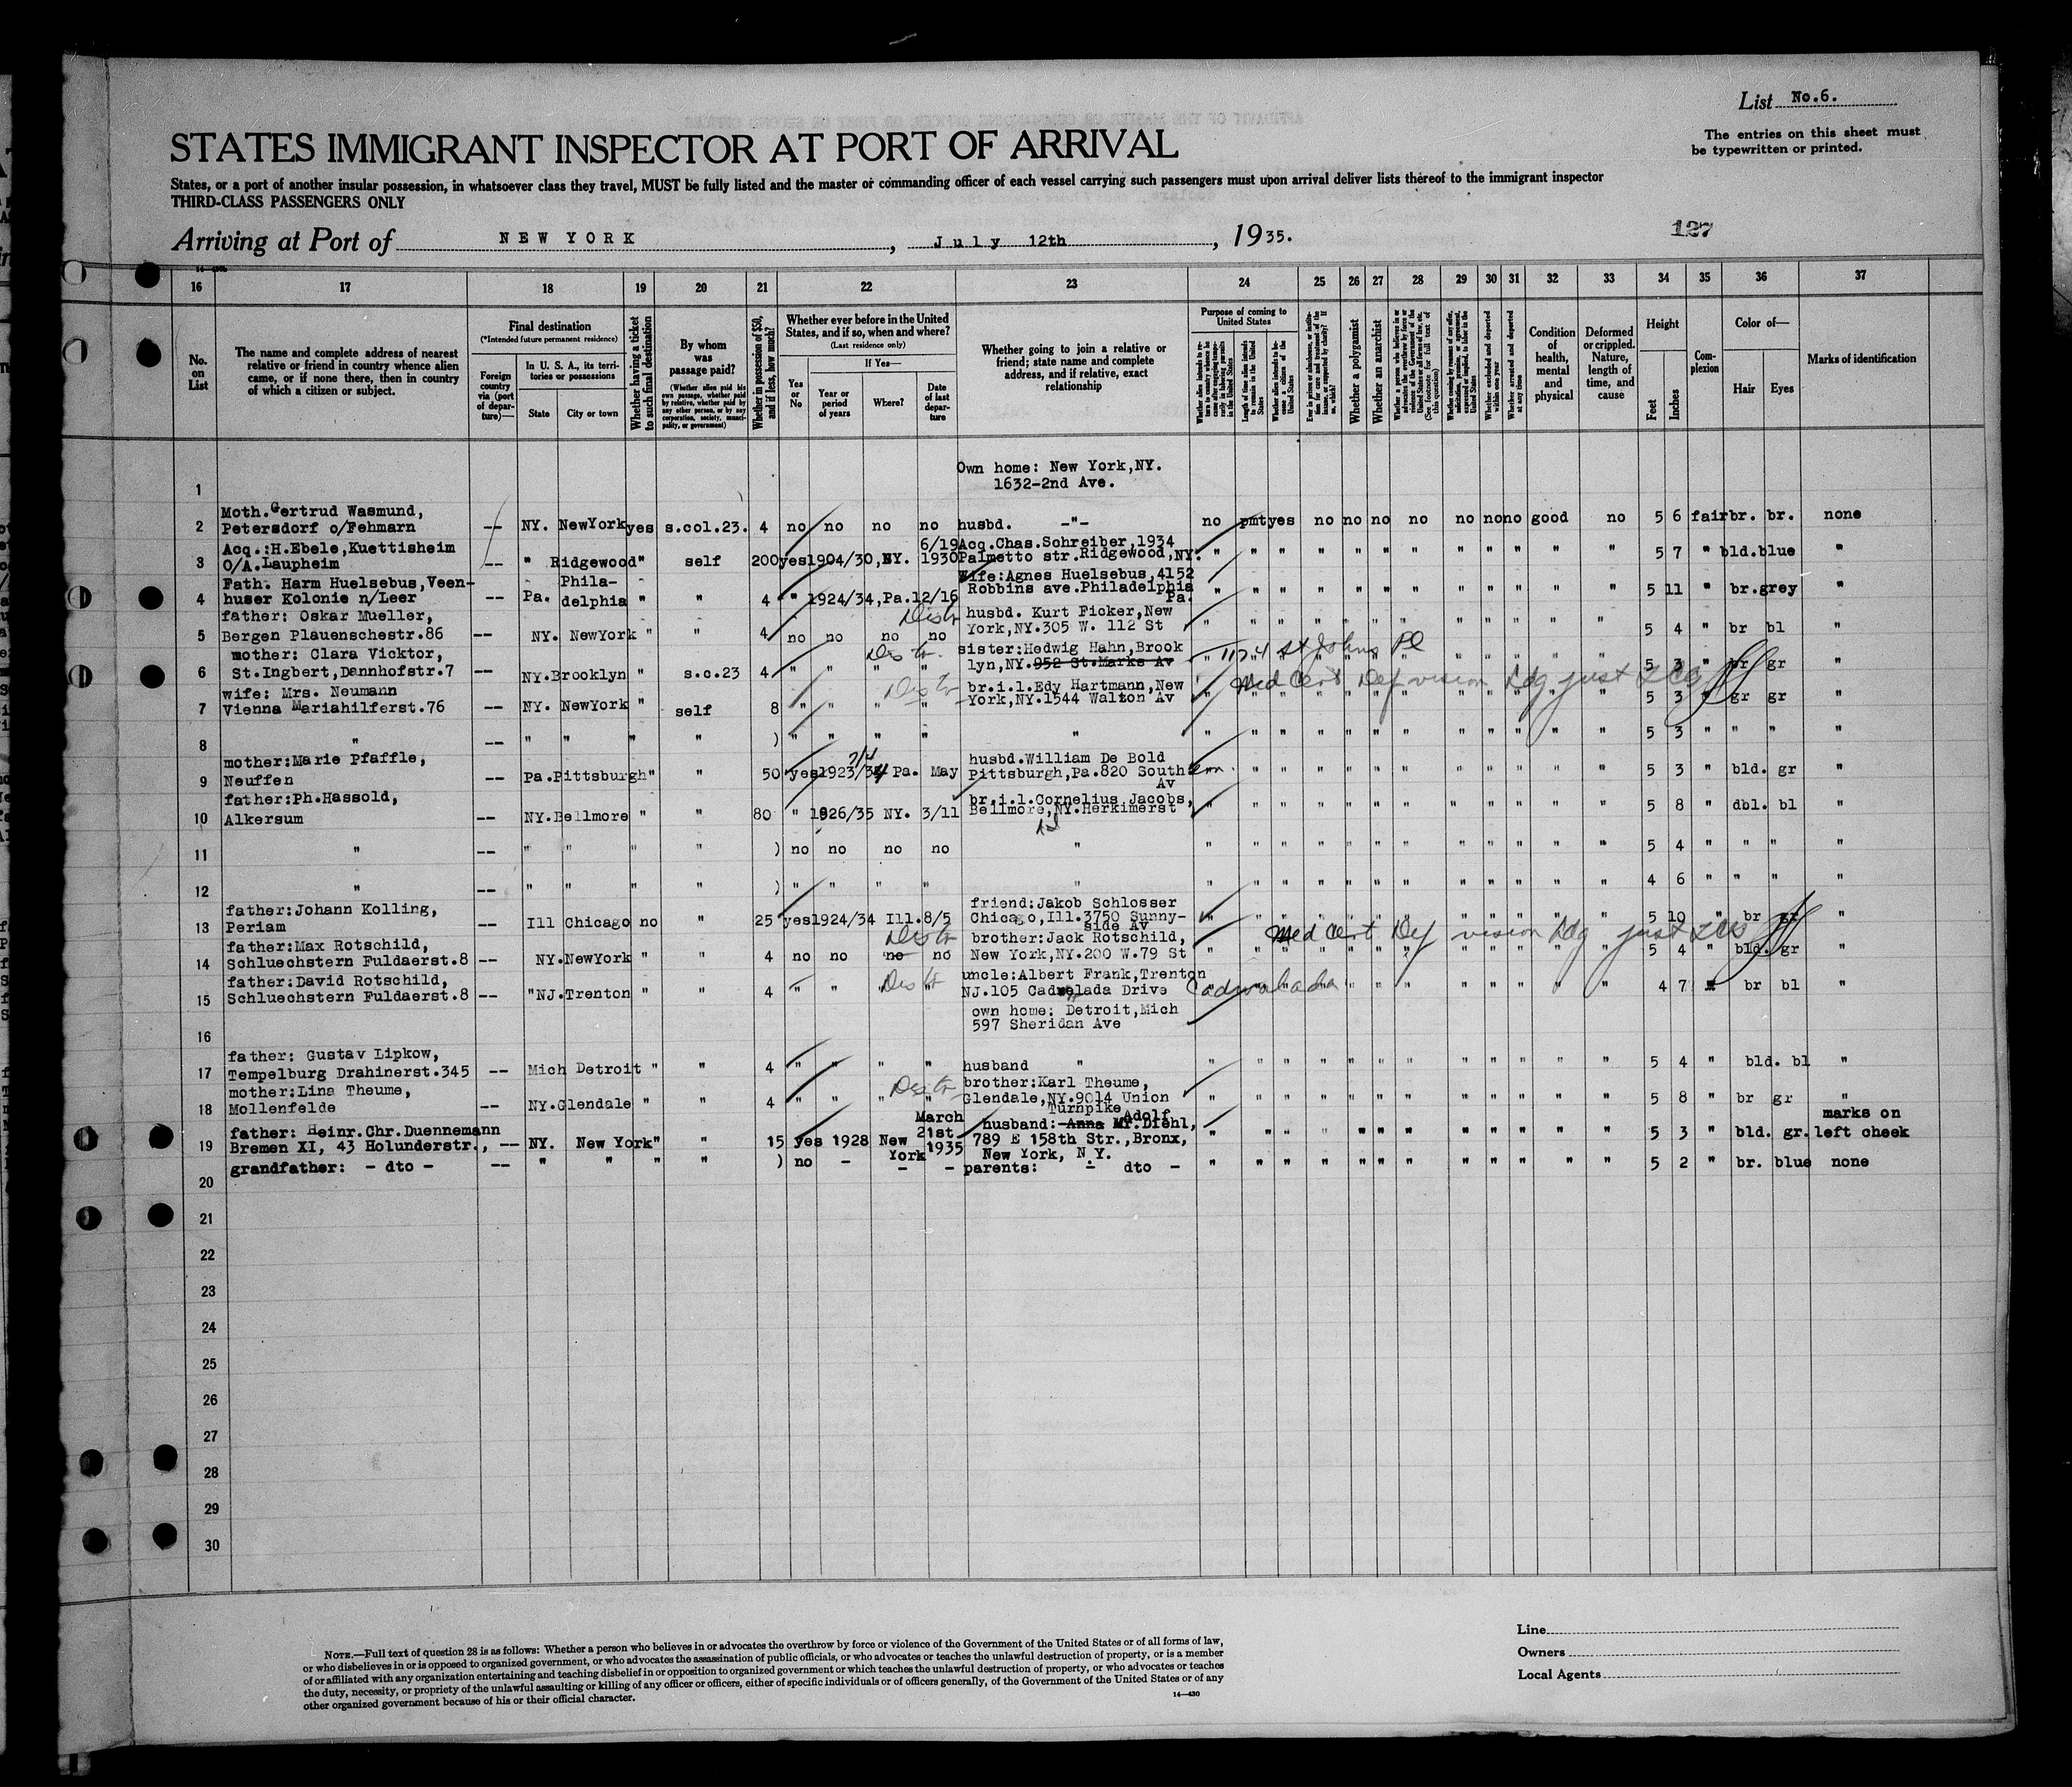 List No.6.
The entries on this sheet must
be typewritten or printed.
STATES IMMIGRANT INSPECTOR AT PORT OF ARRIVAL
States, or a port of another insular possession, in whatsoever class they travel, MUST be fully listed and the master or commanding officer of each vessel carrying such passengers must upon arrival deliver lists thereof to the immigrant inspector
THIRD-CLASS PASSENGERS ONLY
Arriving at Port of NEW YORK, July 12th, 1935.
127
16 17 18 19 20 21 22 23 24 25 26 27 28 29 30 31 32 33 34 35 36 37
No. on List
The name and complete address of nearest
relative or friend in country whence alien
came, or if none there, then in country
of which a citizen or subject.
Final destination
(*Intended future permanent residence)
Foreign country via (port of departure)—
In U. S. A., its territories or possessions
State
City or town
Whether having a ticket to such final destination
By whom was passage paid?
(Whether alien paid his own passage, whether paid by relative, whether paid by any other person, or by any corporation, society, municipality, or government)
Whether in possession of $50, and if less, how much?
Whether ever before in the United
States, and if so, when and where?
(Last residence only)
Yes or No
If Yes—
Year or period of years
Where?
Date of last departure
Whether going to join a relative or
friend; state name and complete
address, and if relative, exact
relationship
Purpose of coming to United States
Whether a polygamist
Whether an anarchist
Condition of health, mental and physical
Deformed or crippled. Nature, length of time, and cause
Height
Feet
Inches
Complexion
Color of—
Hair
Eyes
Marks of identification
1 Own home: New York,NY.
1632-2nd Ave.
Moth.Gertrud Wasmund,
2 Petersdorf o/Fehmarn -- NY. NewYork yes s.col.23. 4 no no no no husbd. -"- no pmt yes no no no no no no no good no 5 6 fair br. br. none
Acq.:H.Ebele,Kuettisheim 6/19 Acq.Chas.Schreiber,1934
3 O/A.Laupheim -- " Ridgewood " self 200 yes 1904/30, NY. 1930 Palmetto str.Ridgewood,NY. " " " " " " " " " " " " 5 7 " bld. blue "
Fath. Harm Huelsebus,Veen- Phila- Wife:Agnes Huelsebus,4152
4 huser Kolonie n/Leer -- Pa. delphia " " 4 " 1924/34,Pa.12/16 Robbins ave.Philadelphia Pa. " " " " " " " " " " " " 5 11 " br. grey "
father: Oskar Mueller, Distr husbd. Kurt Ficker,New
5 Bergen Plauenschestr.86 -- NY. NewYork " " 4 no no no no York,NY.305 W. 112 St " " " " " " " " " " " " 5 4 " br bl "
mother: Clara Vicktor, Distr. sister:Hedwig Hahn,Brook 1174 St Johns Pl
6 St.Ingbert,Dannhofstr.7 NY.Brooklyn " s.c.23 4 " " " " lyn,NY.952 St.Marks Av " " " " " " " " " " " 5 3 " br gr "
wife: Mrs. Neumann Distr br.i.l.Edy Hartmann,New Med Cert Def vision Ldg just
7 Vienna Mariahilferst.76 -- NY. NewYork " self 8 " " " " York,NY.1544 Walton Av " " " " " " " " " " " 5 3 " gr gr "
8 " -- " " " " ) " " " " " " " " " " " " " " " " " 5 3 " " " "
mother:Marie Pfaffle, 7/4 husbd.William De Bold
9 Neuffen -- Pa.Pittsburgh " " 50 yes 1923/34 Pa. May Pittsburgh,Pa.820 South Av " " " " " " " " " " " 5 3 " bld. gr "
father:Ph.Hassold, br.i.l.Cornelius Jacobs,
10 Alkersum -- NY.Bellmore " " 80 " 1926/35 NY. 3/11 Bellmore,NY.Herkimerst " " " " " " " " " " " " 5 8 " dbl. bl "
11 " -- " " " " ) no no no no " " " " " " " " " " " " " 5 4 " " " "
12 " -- " " " " ) " " " " " " " " " " " " " " " " " 4 6 " " " "
father:Johann Kolling, friend:Jakob Schlosser
13 Periam -- Ill Chicago no " 25 yes 1924/34 Ill.8/5 Chicago,Ill.3750 Sunny-
side Av " " " " " " " " " " " " 5 10 " br gr "
father:Max Rotschild, Distr brother:Jack Rotschild, Med Cert Def vision Ldg just
14 Schluechstern Fuldaerst.8 -- NY.NewYork " " 4 no no no no New York,NY.200 W.79 St 5 4 " bld. gr "
father:David Rotschild, Distr uncle:Albert Frank,Trenton
15 Schluechstern Fuldaerst.8 -- "NJ.Trenton " " 4 " " " " NJ.105 Cadwalada Drive Cadwalada " " " " " " " " 4 7 " br bl "
16 own home: Detroit,Mich
597 Sheridan Ave
father: Gustav Lipkow,
17 Tempelburg Drahinerst.345 -- Mich Detroit " " 4 " " " " husband " " " " " " " " " " " " " 5 4 " bld. bl "
mother:Lina Theume, Distr brother:Karl Theume,
18 Mollenfelde -- NY.Glendale " " 4 " " " " Glendale,NY.9014 Union
Turnpike " " " " " " " " " " " " 5 8 " br gr "
father: Heinr.Chr.Duennemann March husband: Anna Mr. Adolf Diehl, marks on
19 Bremen XI, 43 Holunderstr., -- NY. New York " " 15 yes 1928 New York 21st 1935 789 E 158th Str.,Bronx,
New York, N Y. " " " " " " " " " " " " 5 3 " bld. gr. left cheek
20 grandfather: - dto - -- " " " " ) no - - - parents: - dto - " " " " " " " " " " " " 5 2 " br. blue none
21
22
23
24
25
26
27
28
29
30
NOTE.—Full text of question 28 is as follows: Whether a person who believes in or advocates the overthrow by force or violence of the Government of the United States or of all forms of law,
or who disbelieves in or is opposed to organized government, or who advocates the assassination of public officials, or who advocates or teaches the unlawful destruction of property, or is a member
of or affiliated with any organization entertaining and teaching disbelief in or opposition to organized government or which teaches the unlawful destruction of property, or who advocates or teaches
the duty, necessity, or propriety of the unlawful assaulting or killing of any officer or officers, either of specific individuals or of officers generally, of the Government of the United States or of any
other organized government because of his or their official character.
14—430
Line
Owners
Local Agents